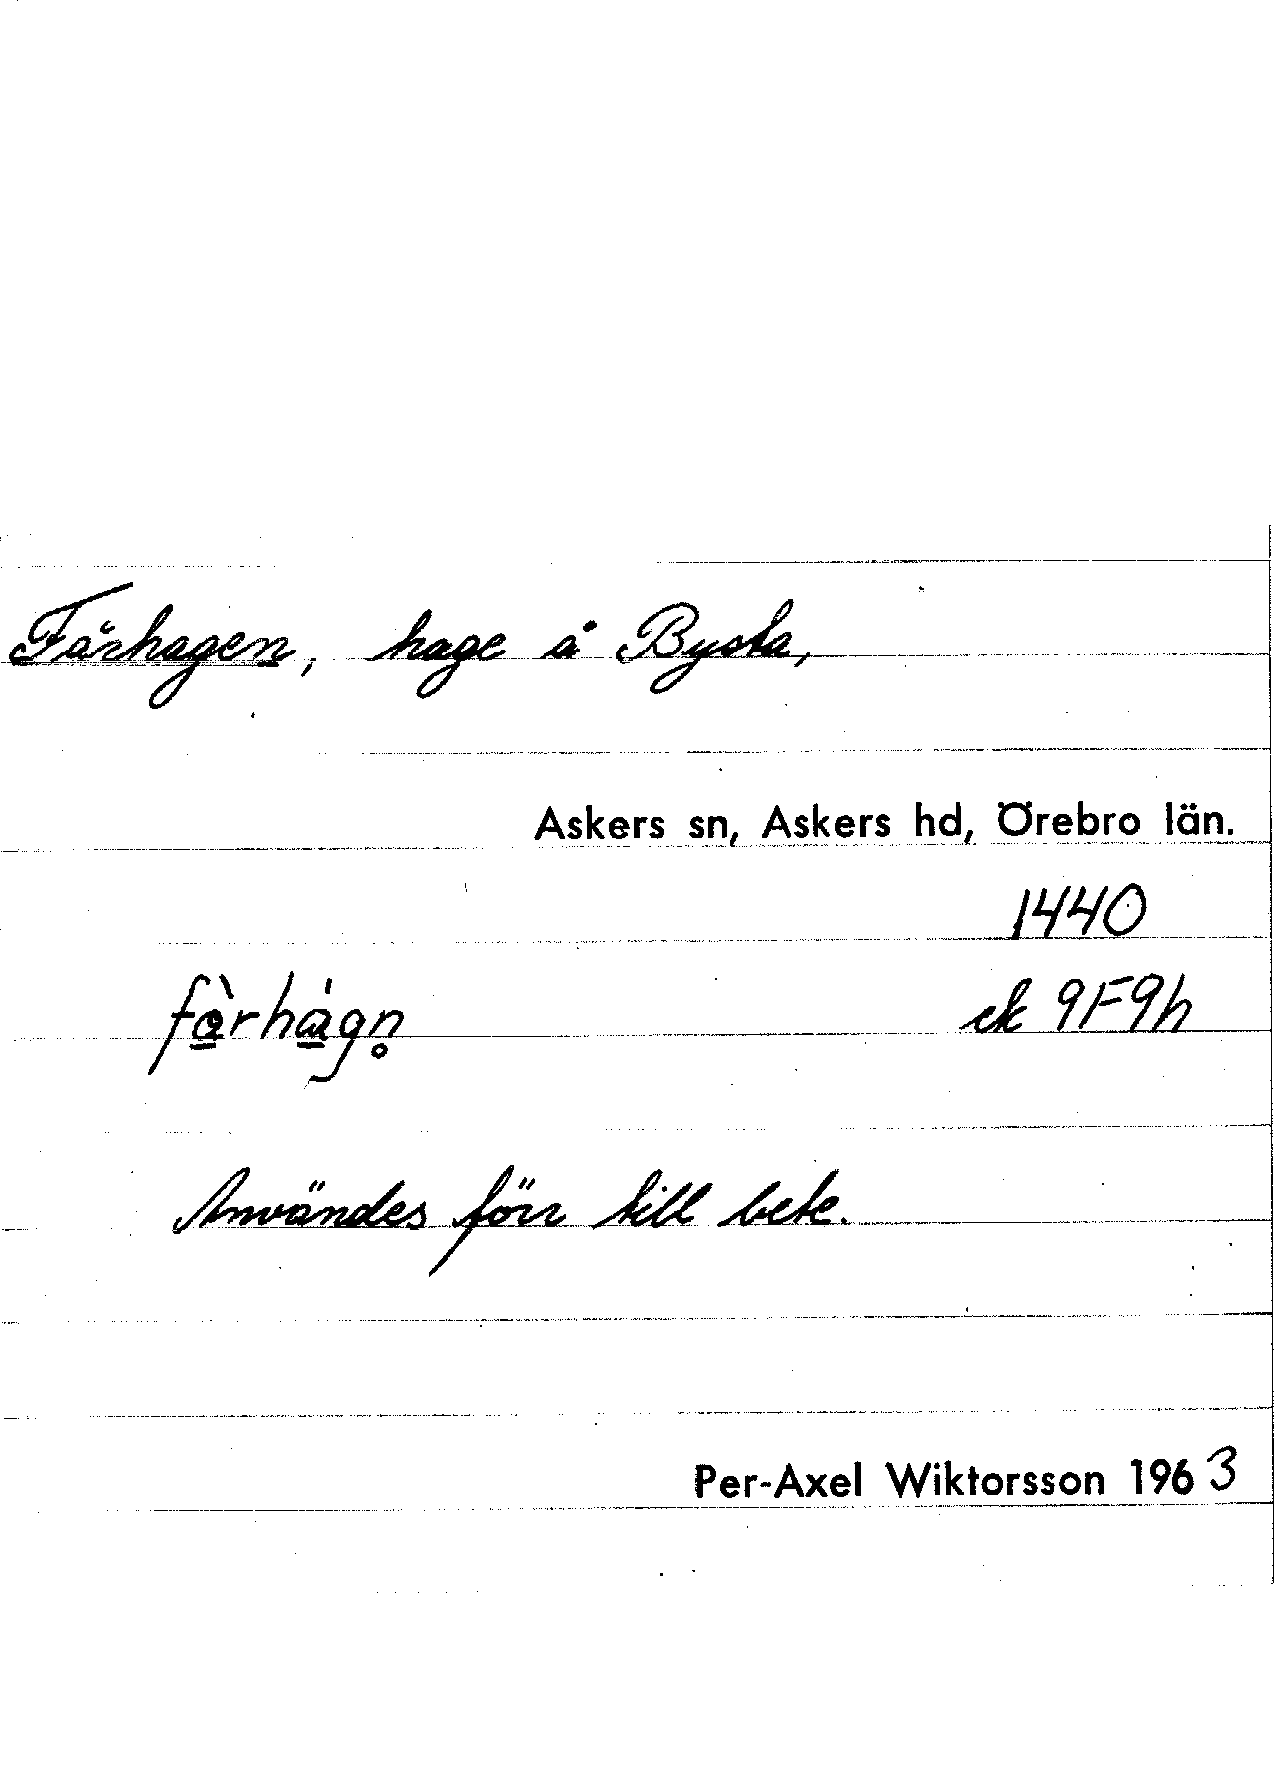 Fårhagen, hage å Bysta,
Askers sn, Askers hd, Örebro län.
1440
fàrhágn̥
ek 9F9h
Användes förr till bete.
Per-Axel Wiktorsson 1963